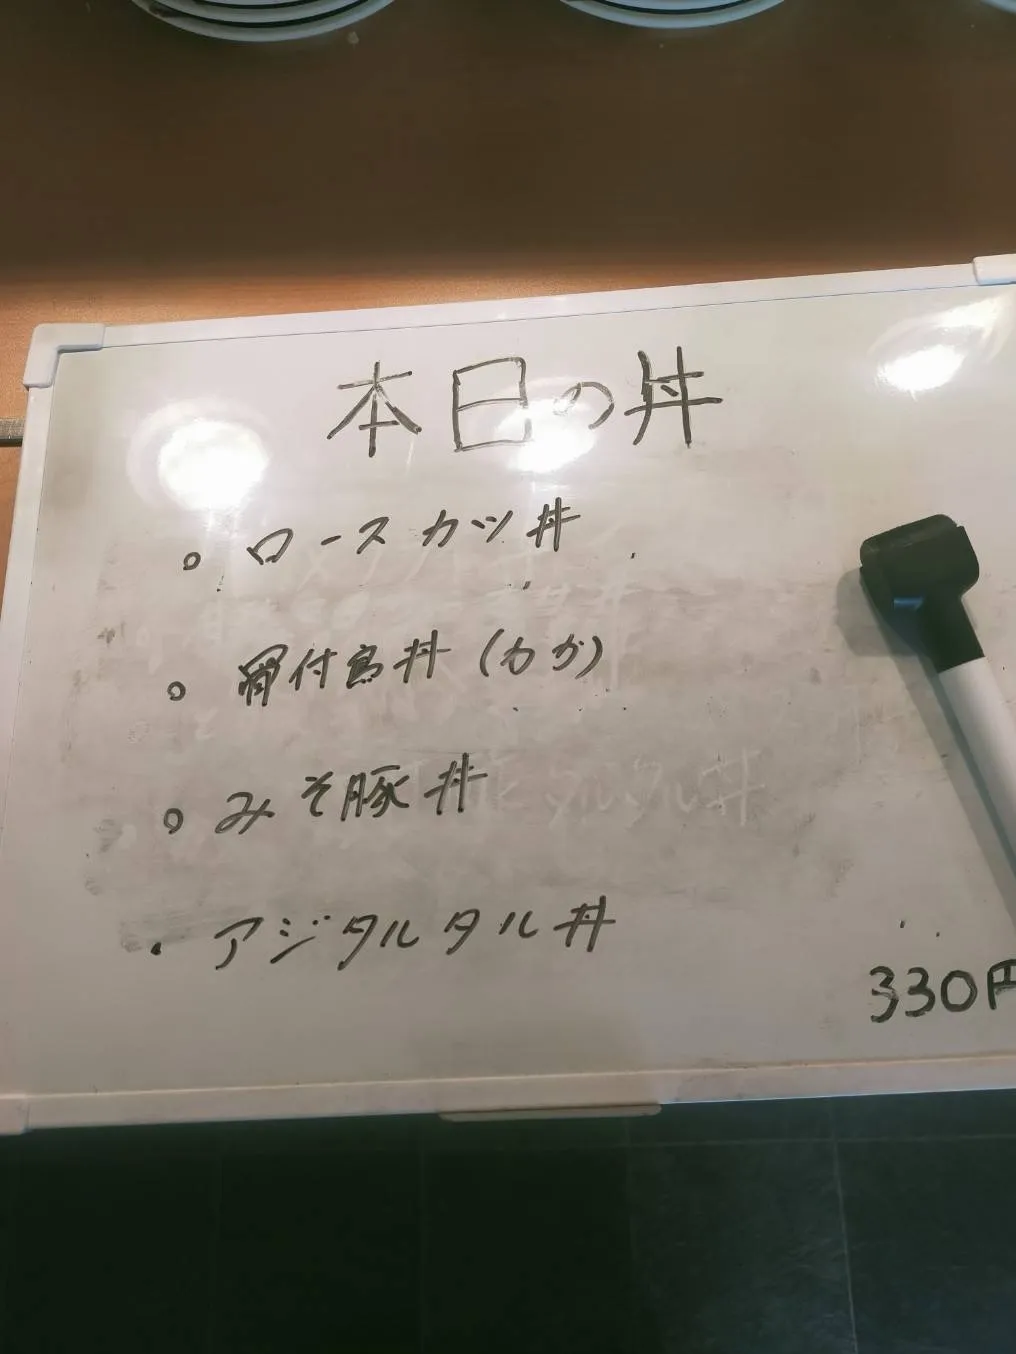 本日の丼
。ロースカツ丼
。骨付鳥丼(わか)
。みそ豚丼
・アジタルタル丼
330円